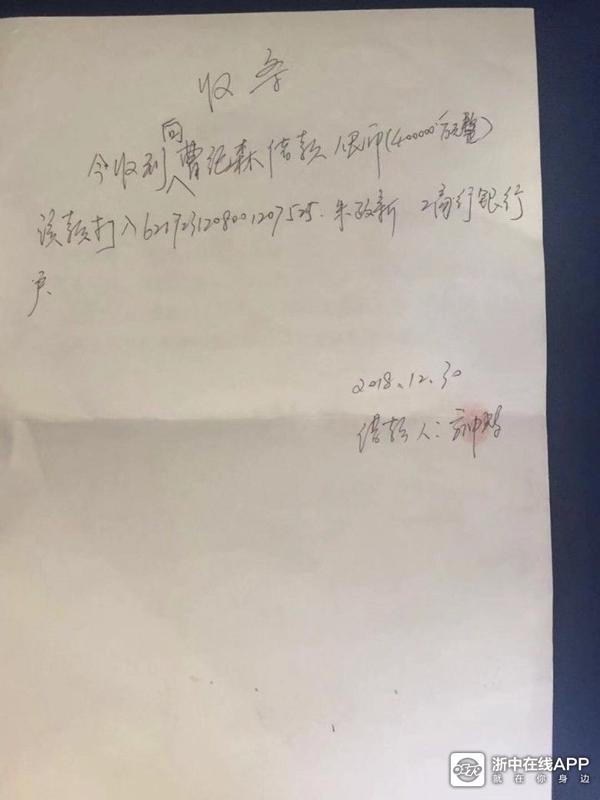 收条
今收到向曹纪森借款人民币(400000元整)
该款打入6217231208001207525.朱政新 工商行银行
户
2018.12.30
借款人:
浙中在线APP
就在你身边